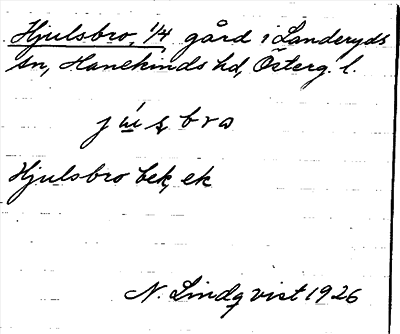 Hjulsbro, 1/4 gård i Landeryds
sn, Hanekinds hd, Österg. l.
Hjulsbro bek, ek
N. Lindqvist 1926